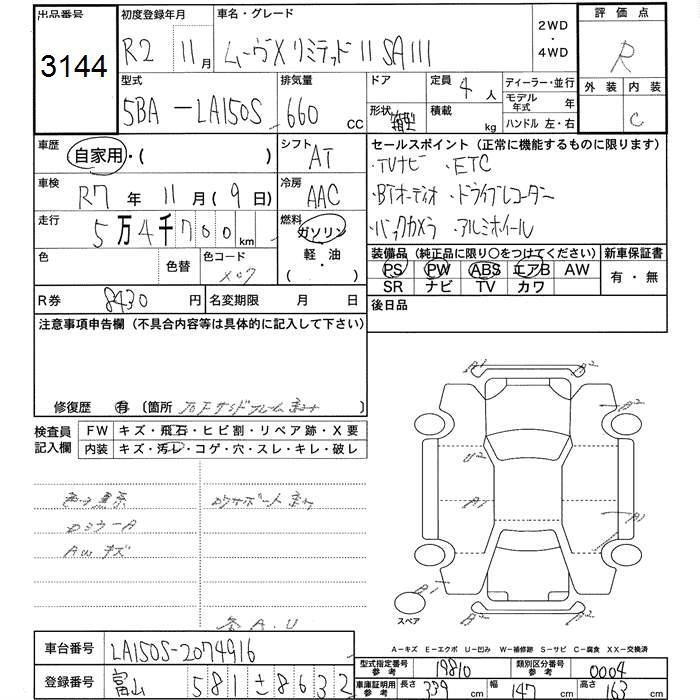 出品番号 初度登録年月 車名・グレード 2WD・4WD 評価点
3144 R2 11月 ムーヴXリミテッドII SAIII R
型式 排気量 ドア 定員 ディーラー・並行 外装 内装
5BA-LA150S 660 cc 形状 箱型 4人 積載 kg モデル年式 年 ハンドル 左・右 C
車歴 自家用・( ) シフト AT セールスポイント(正常に機能するものに限ります)
車検 R7年11月(9日) 冷房 AAC
・TVナビ ・ETC
・BTオーディオ ・ドライブレコーダー
・バックカメラ ・アルミホイール
走行 5万4千700km 燃料 ガソリン 軽・油 ・( )
色 色替 色コード X07
装備品(純正品に限り○をつけてください) 新車保証書
PS PW ABS エアB AW 有・無
SR ナビ TV カワ
R券 8430円 名変期限 月 日 後日品
注意事項申告欄(不具合内容等は具体的に記入して下さい)
修復歴 有 〔箇所
検査員記入欄 FW キズ・飛石・ヒビ割・リペア跡・X要
内装 キズ・汚レ・コゲ・穴・スレ・キレ・破レ
AWキズ
各A.U
A1 B2
B2
U2
A1
A2
B2
スペア
A-キズ E-エクボ U-凹み W-補修跡 S-サビ C-腐食 XX-交換済
車台番号 LA150S-2074916
型式指定番号参考 19810 類別区分番号参考 0004
登録番号 富山 581 さ 8632
車庫証明用参考 長さ 339cm 幅 147cm 高さ 163cm